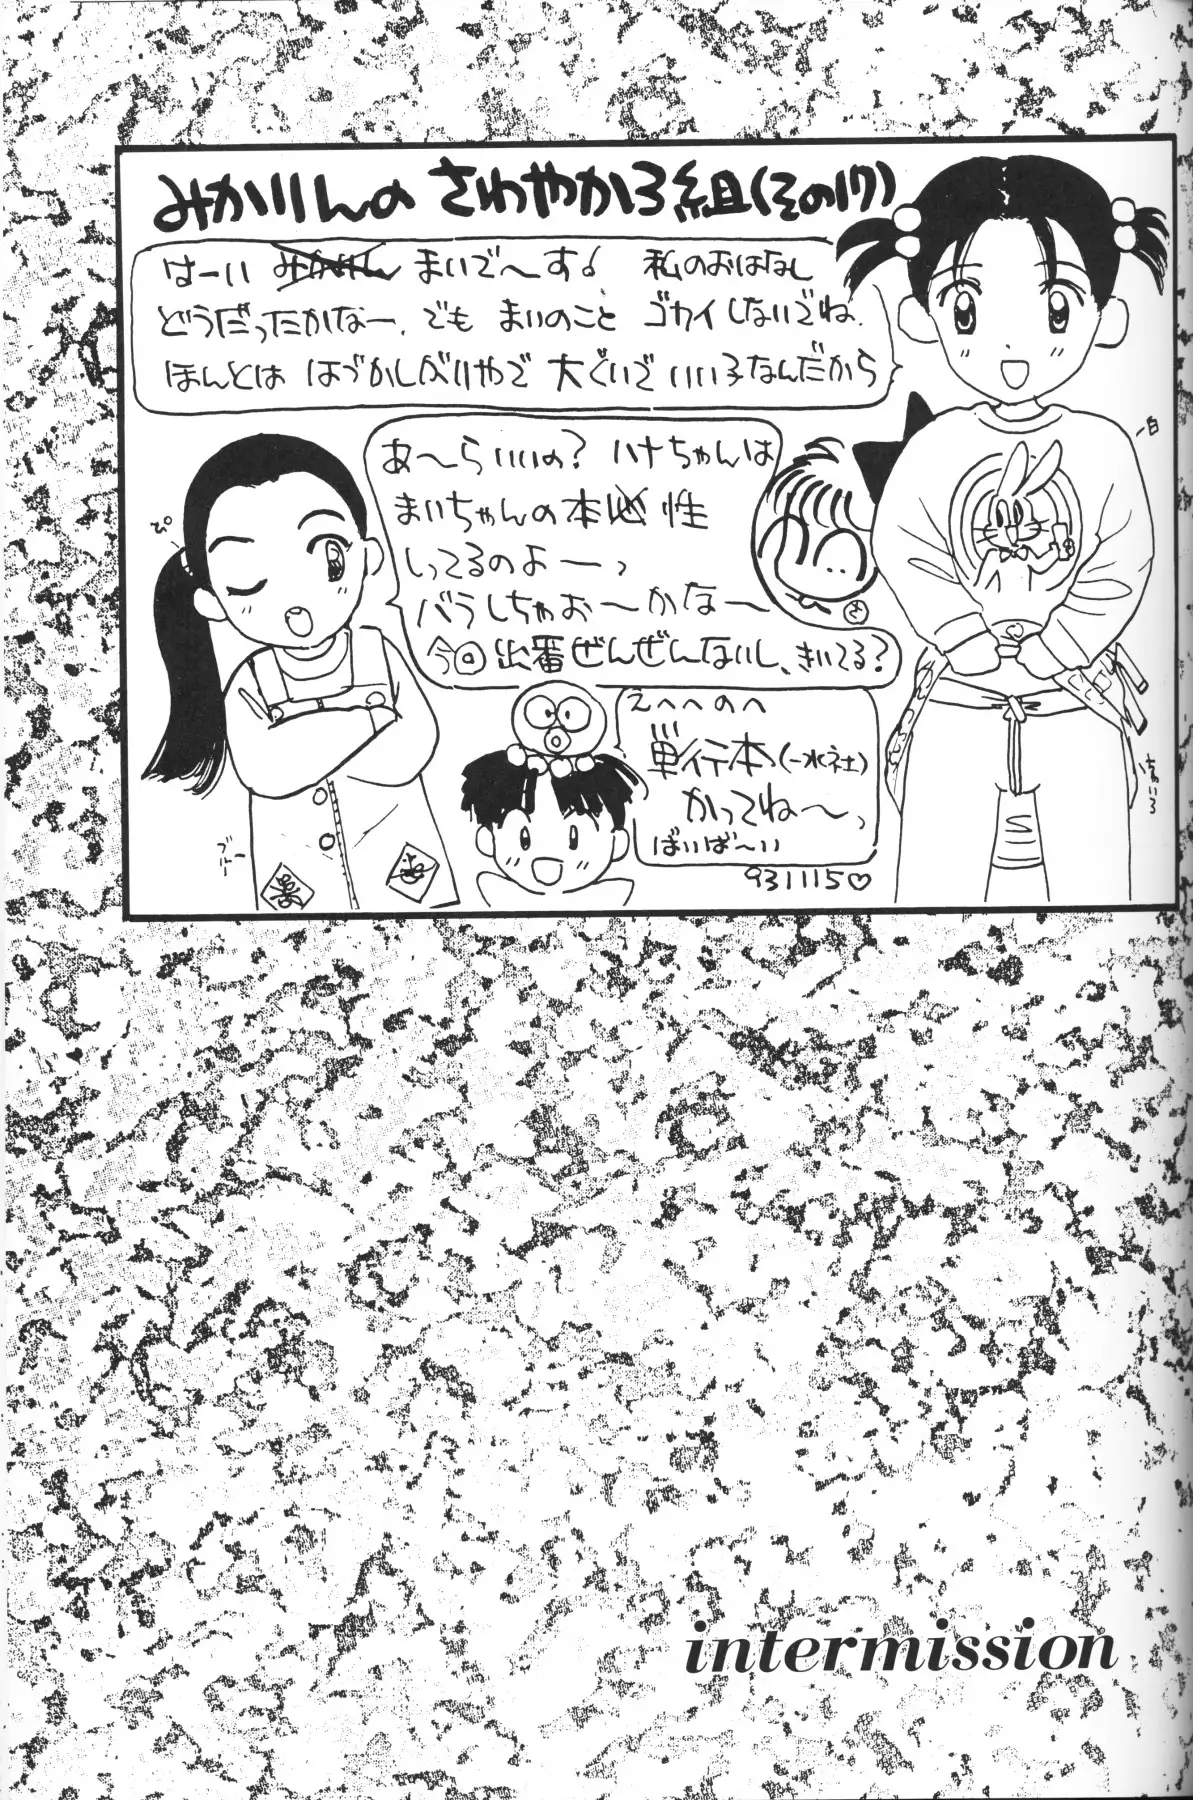 みかりんの さわやか3組(その17)
はーい みかりん まいで〜す♪ 私のおはなし
どうだったかなー、でも まいのこと ゴカイしないでね、
ほんとは はづかしがりやで 大ぐいで いい子なんだから
あ〜らいいの? ハナちゃんは
まいちゃんの本心性
しってるのよーっ
バラしちゃお〜かな〜
今回出番ぜんぜんないし、きいてる?
えへへのへ
単行本(一水社)
かってね〜っ
ばいば〜い
931115♡
白
ちゃいろ
ブルー
intermission